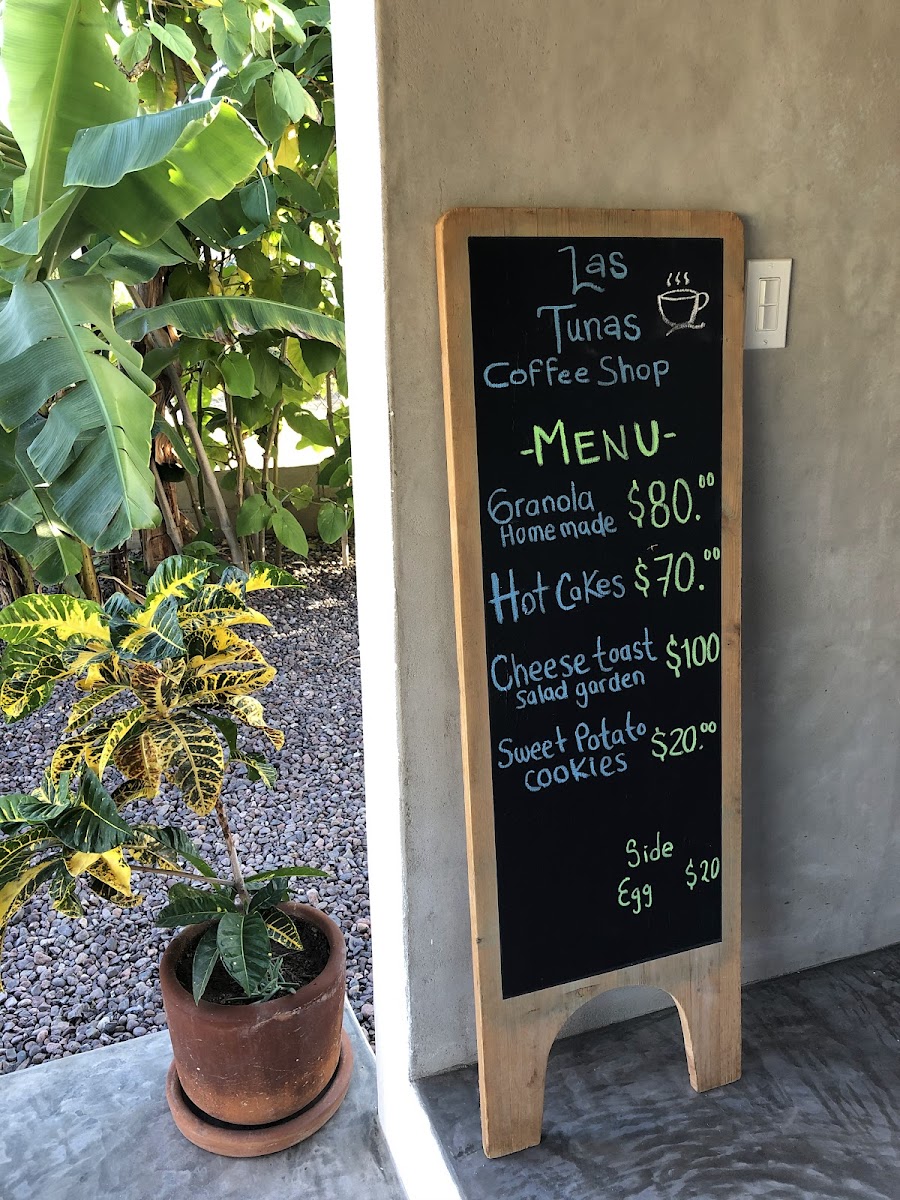 Las
Tunas
Coffee Shop
-MENU-
Granola $80.00
Homemade
Hot Cakes $70.00
Cheese toast $100
Salad garden
Sweet Potato $20.00
cookies
Side
Egg $20